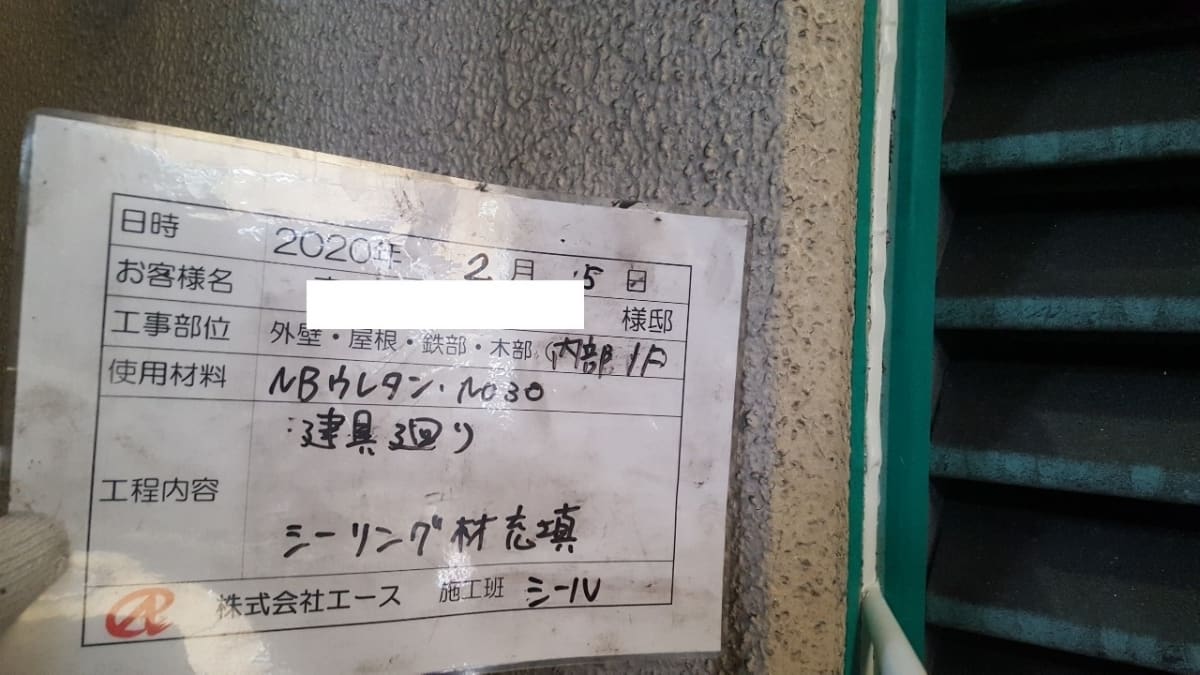 日時 2020年 2月 15日
お客様名 様邸
工事部位 外壁・屋根・鉄部・木部 (内部 1F
使用材料 NBウレタン・NO30
工程内容 建具廻り
シーリング材充填
株式会社エース 施工班 シール